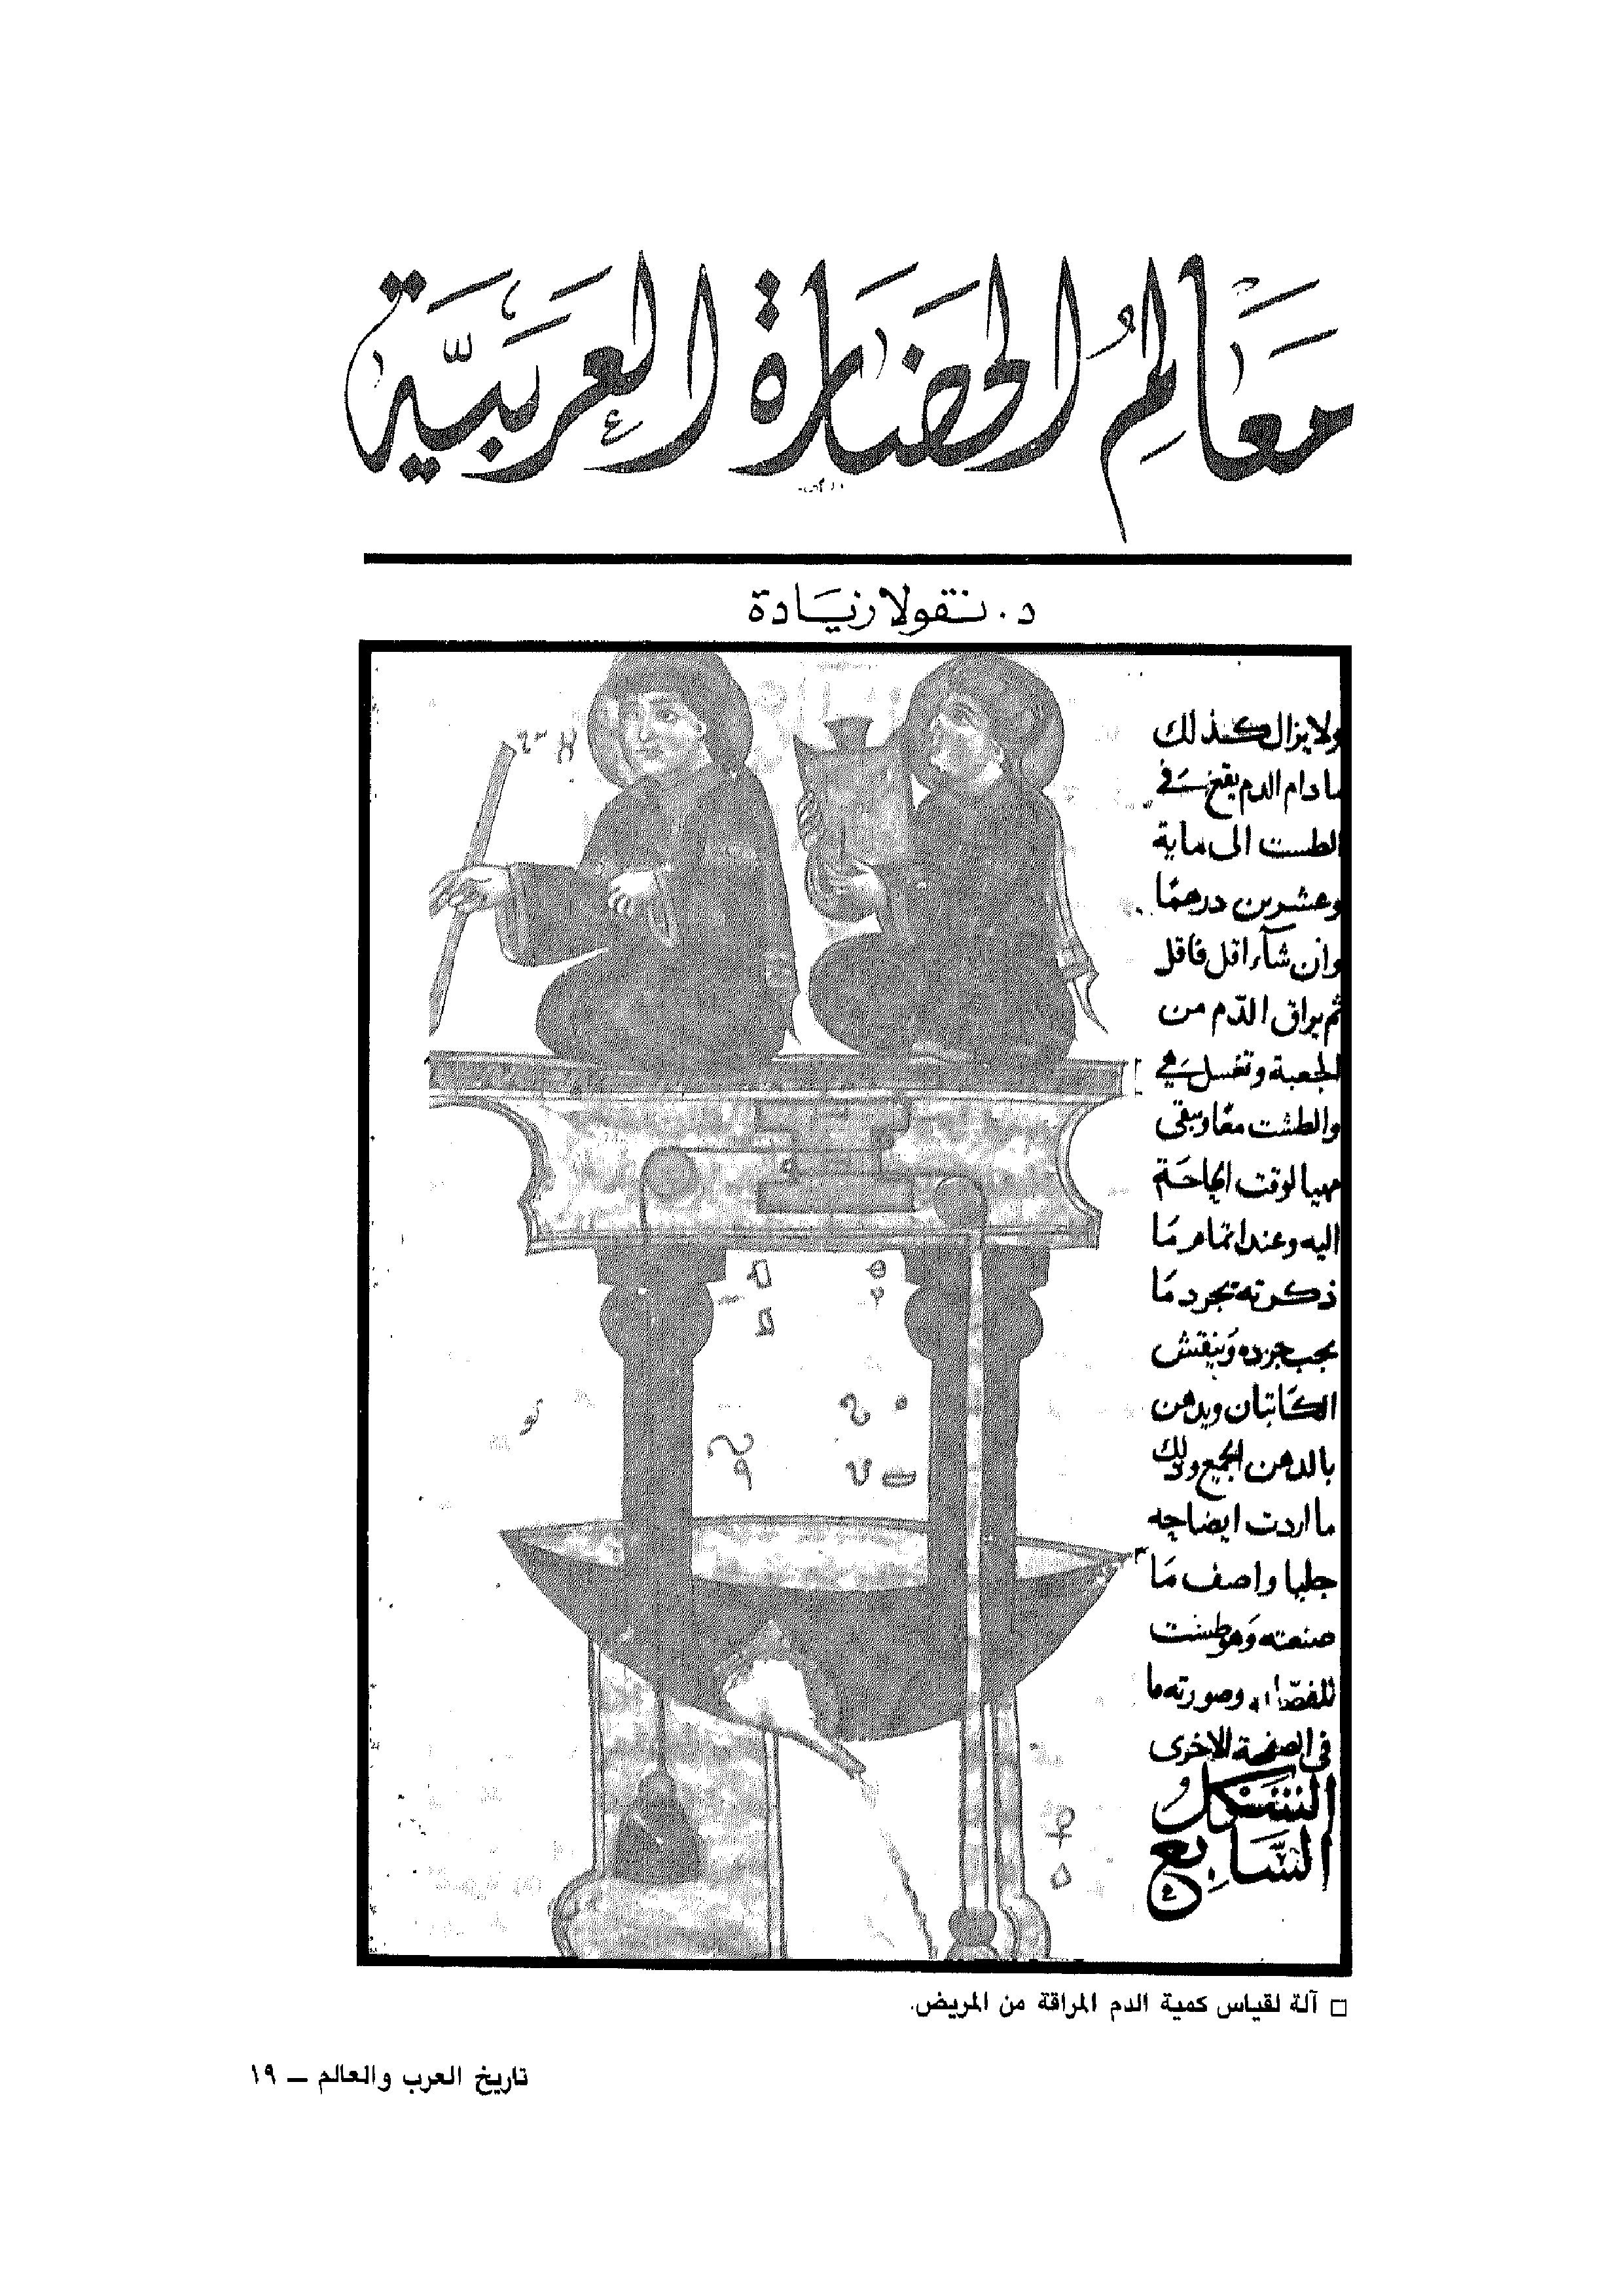 معَالِمُ الحَضَارَة العَرَبيَّة
د. نقولا زيَادة
ولا يزال كذلك
ما دام الدم يقع في
الطست الى ماية
وعشرين درهمًا
وان شآء اقل فاقل
ثم يراق الدّم من
الجعبة وتغسل هي
والطشت معًا ويبقى
مهيا لوقت الحاجَة
اليه وعند اتمام مَا
ذكرته يجرد مَا
يجب جرده وَينقش
الكَاتبان ويدهن
بالدهن الجميع وذلك
ما اردت ايضاحه
جليا واصف مَا
صنعته وَهو طست
للفصّاد وصورته ما
في الصفحة الاخرى
الشكل
السَّابع
□ آلة لقياس كمية الدم المراقة من المريض.
تاريخ العرب والعالم — ١٩